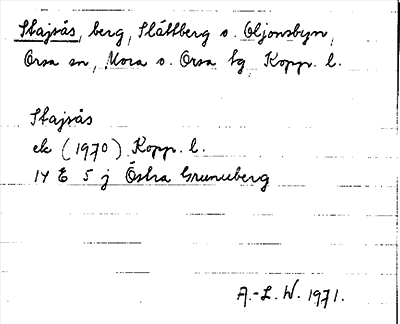 Stajsås, berg, Slättberg o. Oljonsbyn,
Orsa sn, Mora o. Orsa tg Kopp. l.
Stajsås
ek (1970) Kopp. l.
14 E 5 j Östra Grunuberg
A.-L. W. 1971.